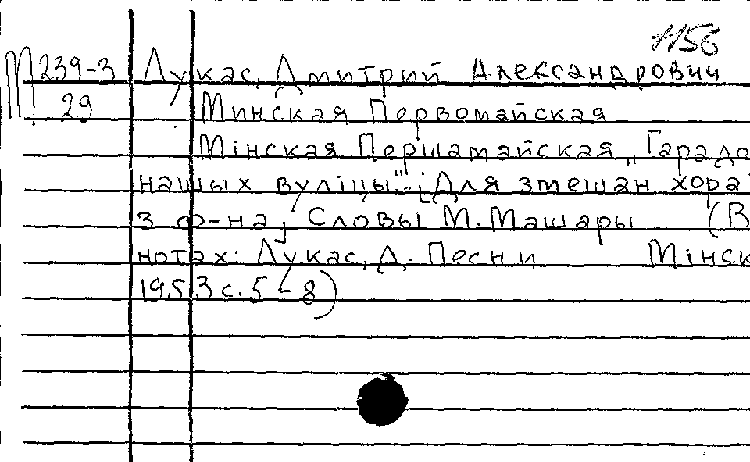 1156
М239-3 Лукас, Дмитрий Александрович
29 Минская Первомайская
Мінская Першамайская „Гарадо
нашых вуліцы": Для змешан хора
з ф-на; Словы М. Машары (В
нотах: Лукас, Д. Песни Мінск
1953 с. 5-8)